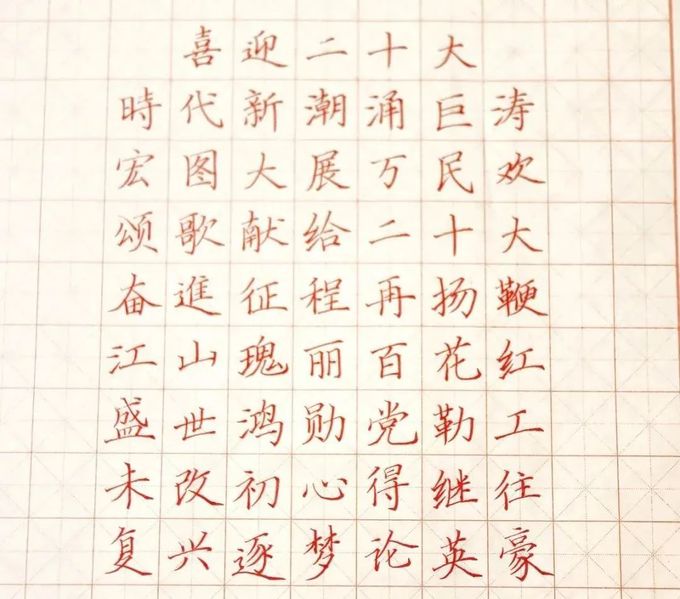 喜迎二十大
時代新潮涌巨涛
宏图大展万民欢
颂歌献给二十大
奋進征程再扬鞭
江山瑰丽百花红
盛世鸿勋党勒工
未改初心得继往
复兴逐梦论英豪